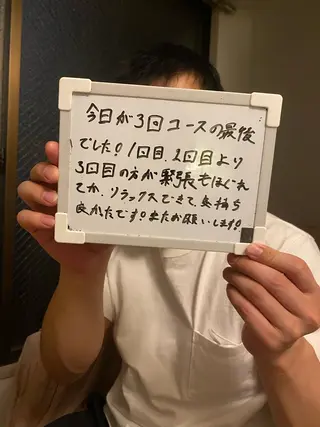 今日が3回コースの最後
でした!1回目、2回目より
3回目の方が緊張もほぐれ
てか、リラックスできて、気持ち
良かったです!またお願いします!